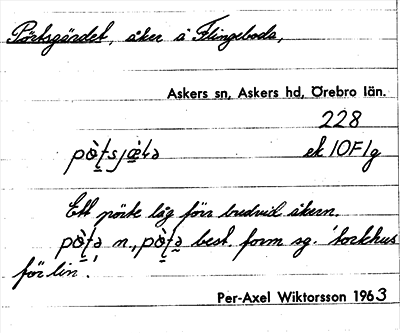 Pörtsgärdet, åker å Flingeboda,
Askers sn, Askers hd, Örebro län.
228
ek 10F1g
Ett pörte låg förr bredvid åkern.
n., best. form sg. 'torkhus
för lin'.
Per-Axel Wiktorsson 1963